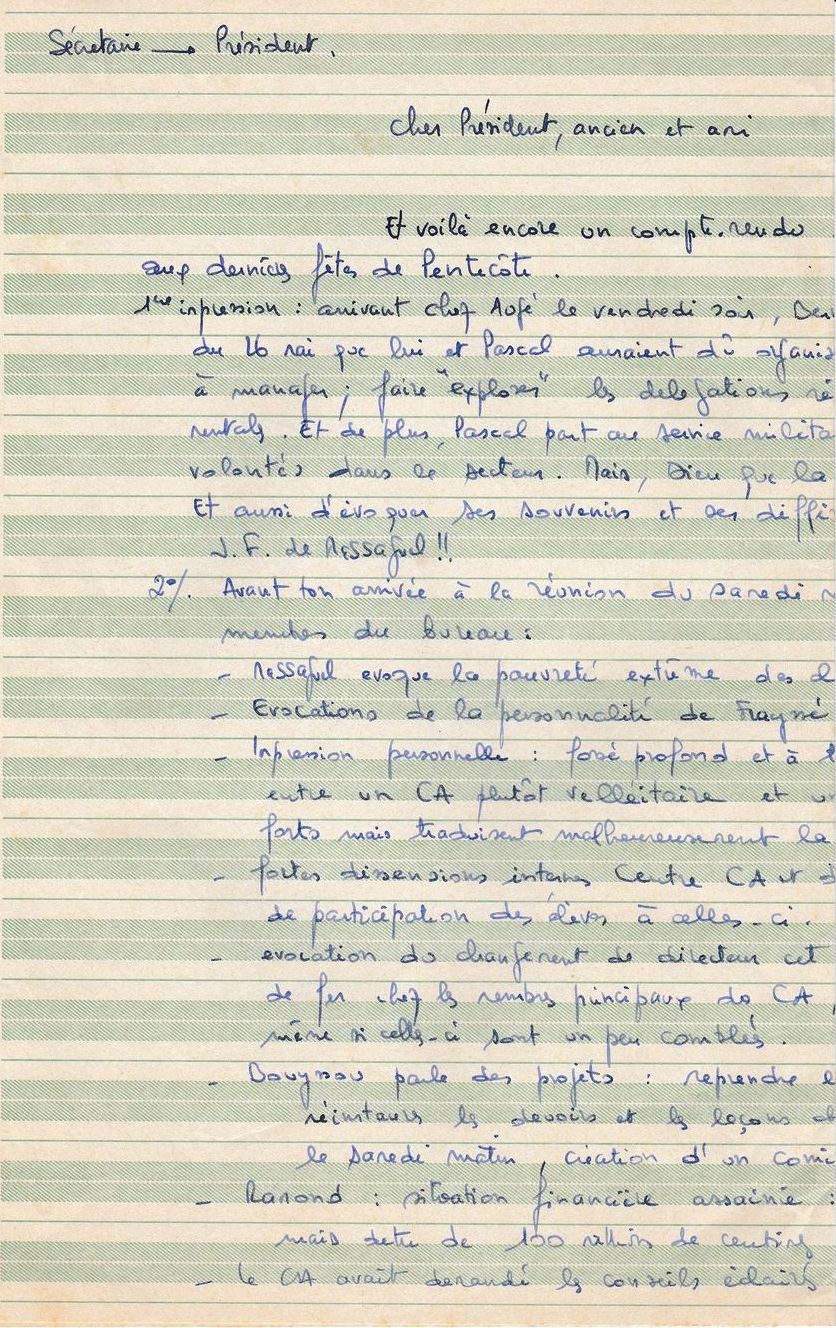 Sécretaire → Président.
Cher Président, ancien et ami
Et voilà encore un compte-rendu
aux dernières fêtes de Pentecôte.
1ère impression : arrivant chez Augé le vendredi soir,
du 16 mai que lui et Pascal auraient dû organis
à manager ; faire "exploser" les délégations ré
mentals. Et de plus, Pascal part au service milita
volontés dans le secteur. Mais, Dieu que la
Et aussi d'évoquer ses souvenirs et ses diffi
J.F. de Messaguel !!
2°/. Avant ton arrivée à la réunion du samedi m
membres du bureau :
- Messaguel evoque la pauvreté extrême des d
- Evocations de la personnalité de Frayssé
- Impression personnelle : fossé profond et à
entre un CA plutôt velléitaire et u
forts mais traduisent malheureusement la
- fortes dissensions internes (entre CA et d
de participation des élèves à celles-ci.
- evocation du changement de directeur cet
de fer chez les membres principaux du CA,
même si celles-ci sont un peu comblés.
- Bouyssou parle des projets : reprendre l
réinstaurer les devoirs et les leçons
le samedi matin, création d'un comi
- Ramond : situation financiïre assainie :
mais dette de 100 millions de centimes
- le CA avait demandé les conseils éclairés